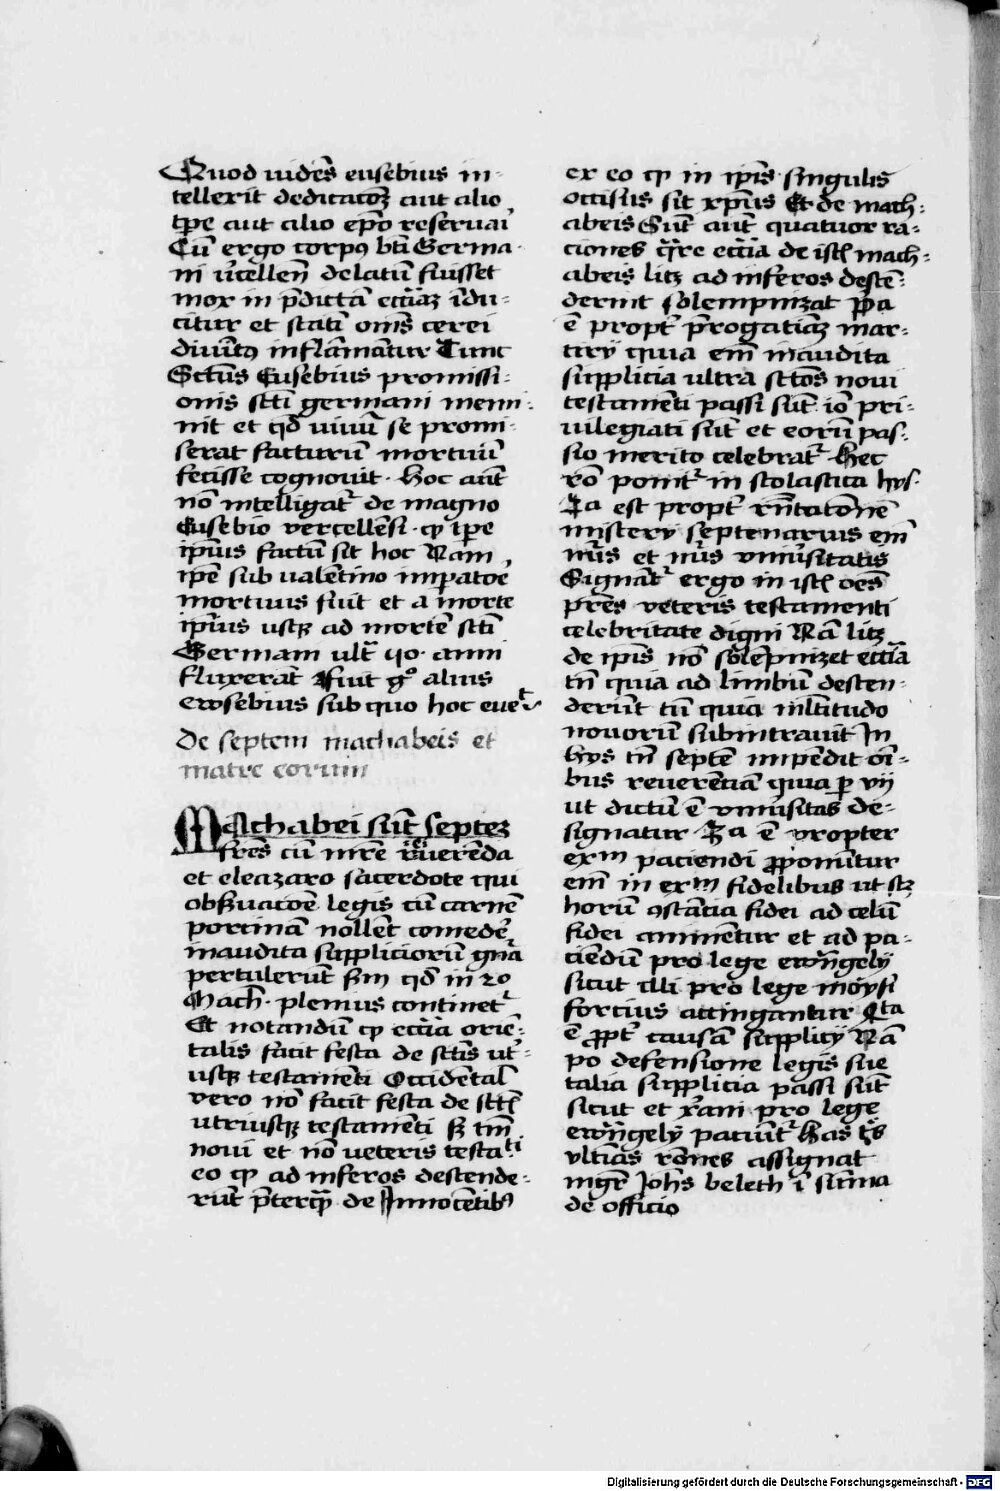 Quod uidēs eusebius in-
tellexit dedicatōꝫ aut alio
tp̄e aut alio ep̄o reseruai
Cū ergo corpꝰ bt̄i Germa-
ni v̄cellen̄ delatū fuisset
mox in p̄dictā eccl̄iaꝫ īdu-
citur et statī om̄s cerei
diuinitꝰ inflāmātur Tunc
Sct̄us Eusebius promissi-
onis sct̄i germani memi-
nit et qd̄ viuū se promi-
serat facturū mortuū
fecisse cognouit · Hoc aūt
nō intelligatᷣ de magno
Eusebio vercellēsi · ꝙ tp̄e
ip̄ius factū sit hoc Nam
ip̄e sub valentino imp̄atoē
mortuus fuit et a morte
ip̄ius usqꝫ ad mortē sct̄i
Germani ult̄ qo · anni
fluxerāt Fuit gͦ alius
ewsebius sub quo hoc euēt
de septem machabeis et
matre eorum
Machabei sūt septeꝫ
fr̄es cū mr̄e reuerēda
et eleazaro sacerdote qui
obs̄uacōe legis cū carnē
porcinā nollēt comedē
inaudita suppliciorū gn̄a
pertulerūt s̄m qd̄ in 2o
Mach · plenius continetᷣ
Et notandū ꝙ eccl̄ia oriē-
talis facit festa de sct̄is ut-
usqꝫ testamēti Occidētal̄
vero nō facit festa de sct̄
utriusqꝫ testamēti sꝫ tm̄
noui et nō veteris testati
eo ꝙ ad inferos descende-
rūt p̄terqꝫ de Innocētibꝰ
ex eo ꝙ in ip̄is singulis
occisus sit xp̄us Et de mach-
abeis Sūt aūt quatuor ra-
ciones q̄re eccl̄ia de ist̄ mach-
abeis licꝫ ad inferos descē-
derint solempnizat P̄a
ē propt̄ p̄rogatiuāꝫ mar-
tirij quia em̄ inaudita
supplicia ultra sct̄os noui
testamēti passi sūt iō pri-
uilegiati sūt et eorū pas-
sio merito celebratᷣ · Hec
rō ponitᷣ in scolastica hys ·
2a est propt̄ rep̄ntatōnē
mistery septenarius em̄
nūs et nūs vniūsitatis
Signātᷣ ergo in ist̄ oēs
pr̄es veteris testamenti
celebritate digni Nā licꝫ
de ip̄is nō solēpnizet eccl̄ia
tū quia ad limbū descen-
derūt tū quia ml̄titudo
nouorū subintrauit In
hys tn̄ septē impēdit oī-
bus reuerētiā quia p̄ vij
ut dictū ē vniūsitas de-
signatur · 3a ē propter
exm̄ paciendi pponūtur
em̄ in exm̄ fidelibus ut scꝫ
horū ꝯstācia fidei ad celū
fidei animētur et ad pa-
ciēdū pro lege ewn̄gely
sicut illi pro lege moysi
forcius accingantur 4ta
ē ppt̄ causā supplicy Nā
po defensione legis sue
talia supplicia passi sūt
sicut et xr̄ani pro lege
ewn̄gely paciūtᷣ Has t̄s
vltias rōnes assignat
mgr̄ Joh̄s beleth ī sūma
de officio
Digitalisierung gefördert durch die Deutsche Forschungsgemeinschaft - DFG